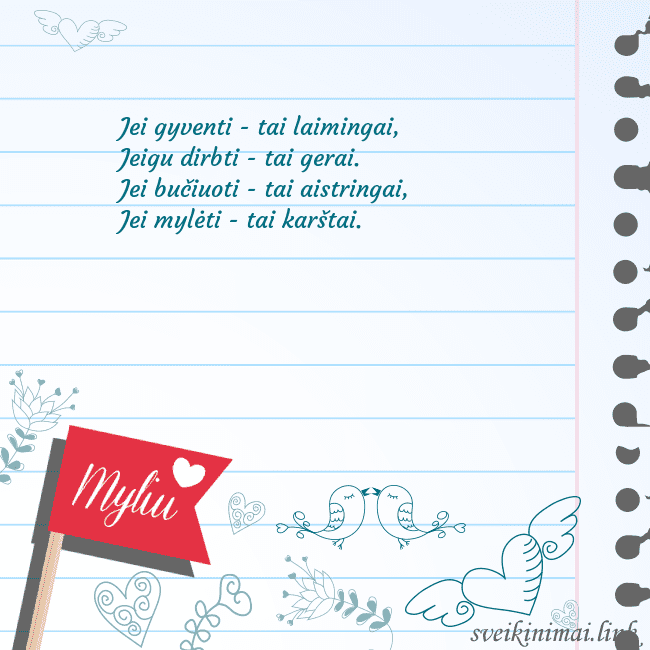 Jei gyventi - tai laimingai,
Jeigu dirbti - tai gerai.
Jei bučiuoti - tai aistringai,
Jei mylėti - tai karštai.
Myliu
sveikinimai.link